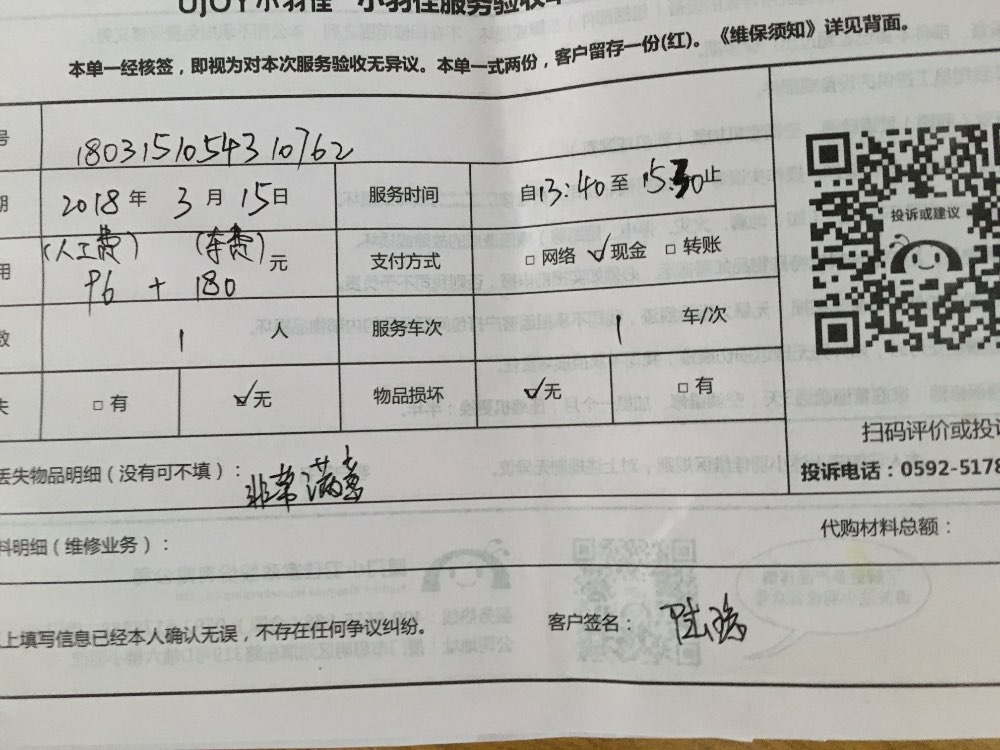 UJOY小羽佳 小羽佳服务验收单
本单一经核签，即视为对本次服务验收无异议。本单一式两份，客户留存一份(红)。《维保须知》详见背面。
号 180315105431 0762
期 2018 年 3 月 15 日 服务时间 自 13:40 至 15:30 止
用 (人工费) (车费) 96 + 180 元 支付方式 □ 网络 ✓ 现金 □ 转账
数 1 人 服务车次 1 车/次
失 □ 有 ✓ 无 物品损坏 ✓ 无 □ 有
投诉或建议
扫码评价或投诉
投诉电话：0592-5178
丢失物品明细（没有可不填）： 非常满意
料明细（维修业务）： 代购材料总额：
上填写信息已经本人确认无误，不存在任何争议纠纷。 客户签名：